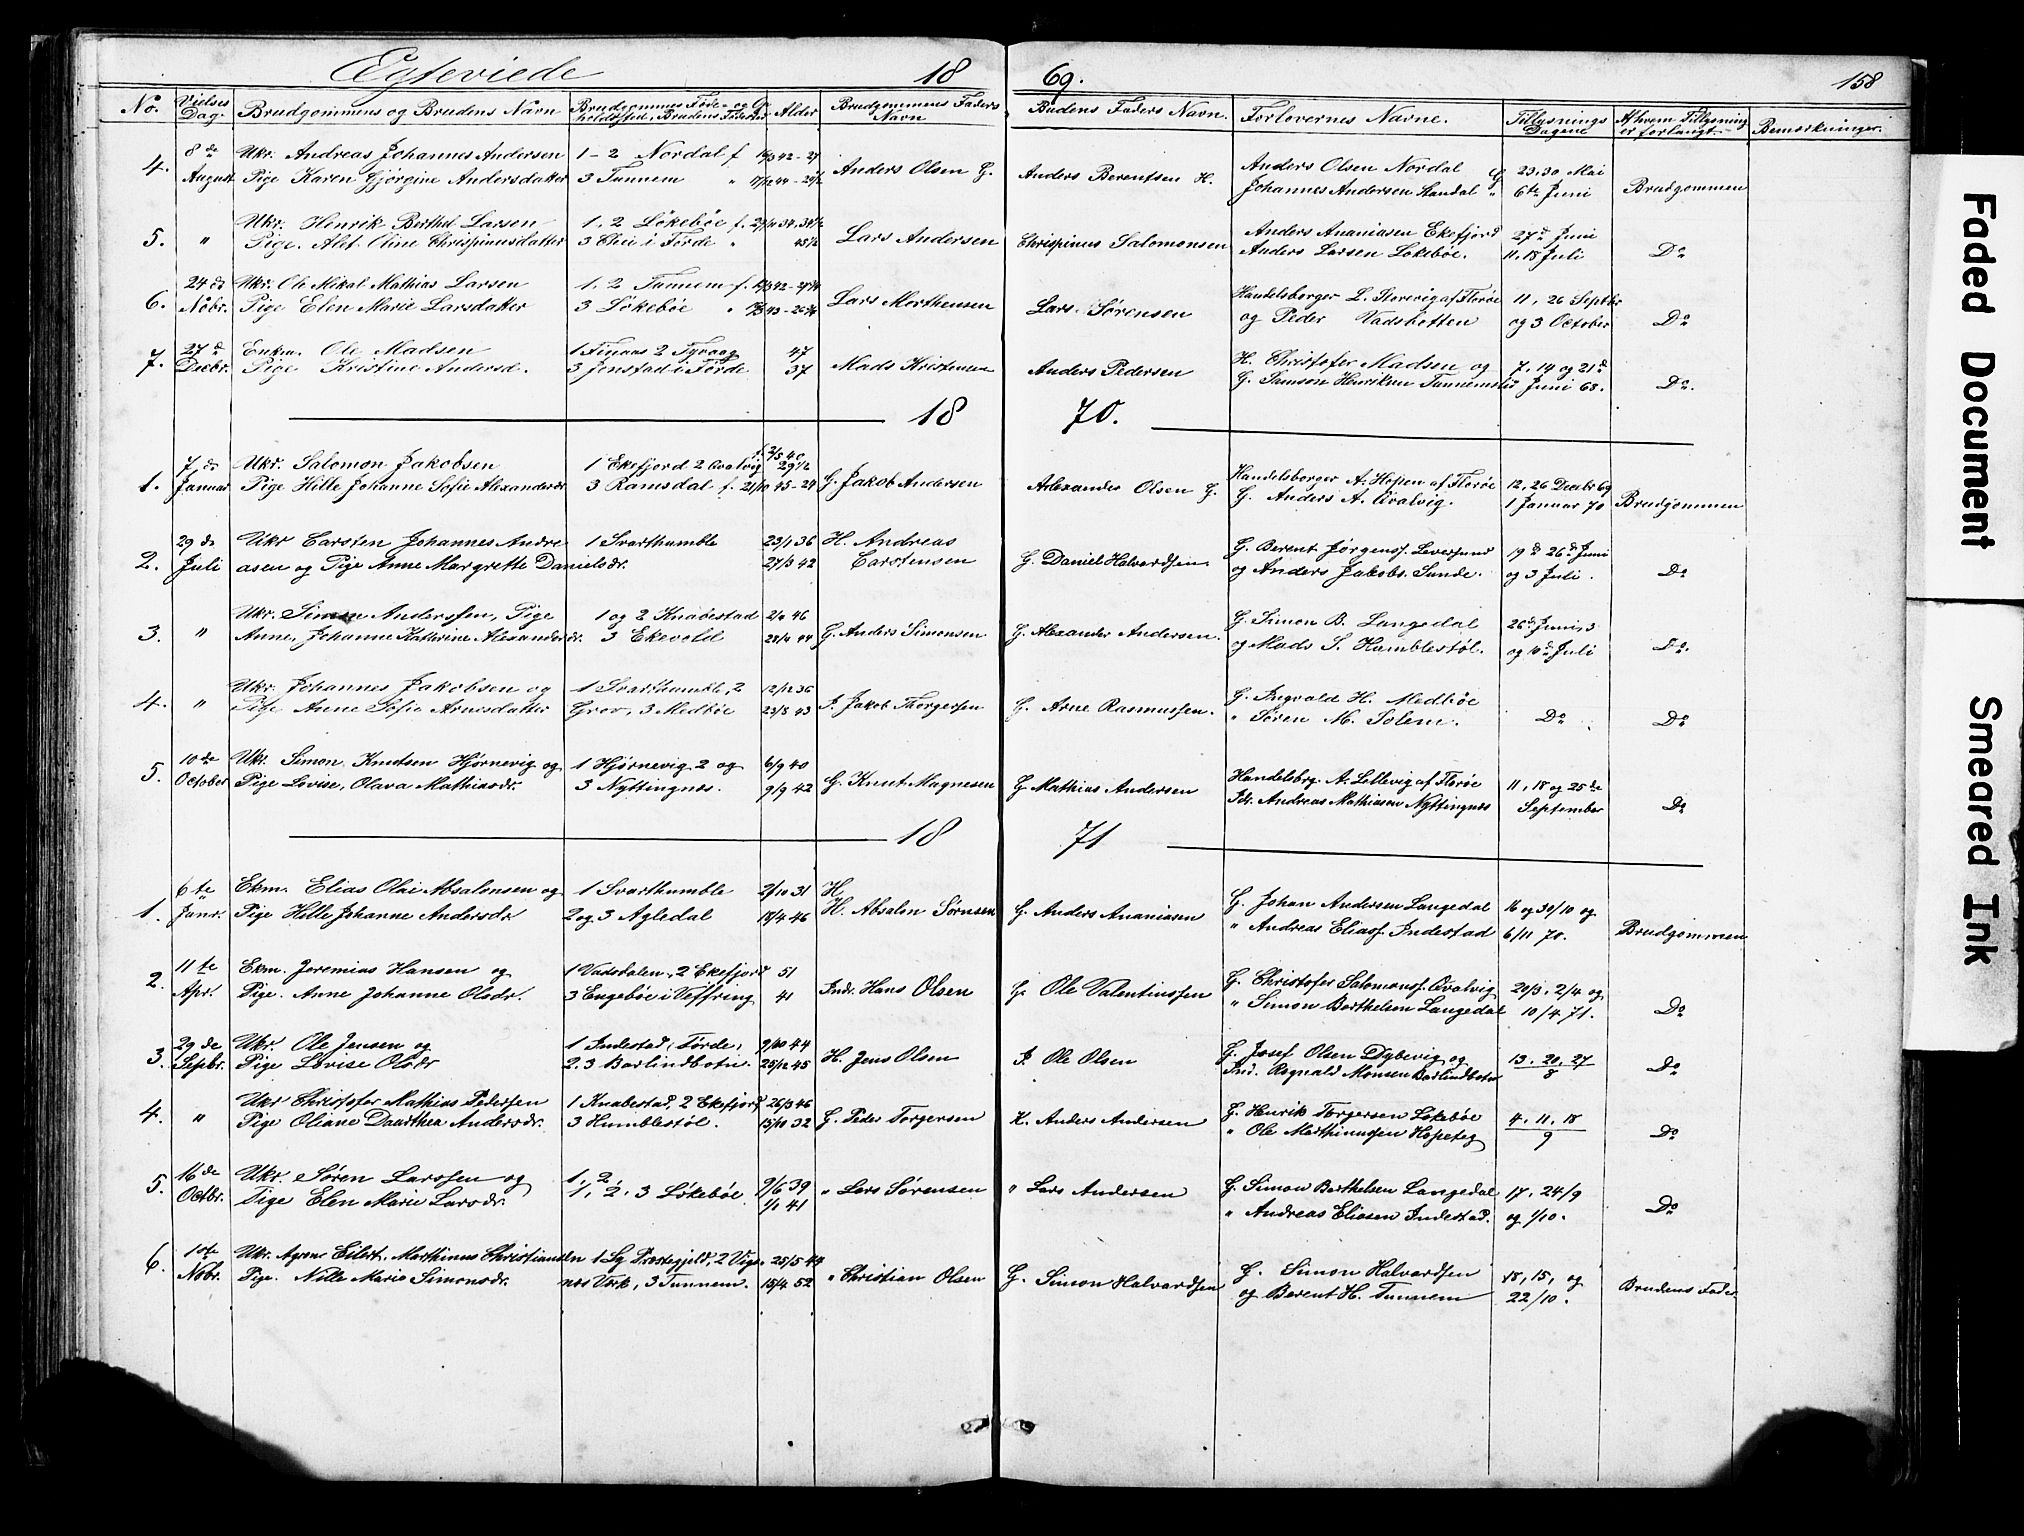 Egteviede 18 69. 158
No. Vielses Dag. Brudgommens og Brudens Navn Brudgommens Føde- og Opholdssted, Brudens Fødested Alder Brudgommens Faders Navn Brudens Faders Navn. Forlovernes Navne. Tillysnings Dagene Af hvem Tillysning er forlangt. Bemærkninger.
4. 8de August Ukr. Andreas Johannes Andersen 1-2 Nordal Anders Olsen G. Anders Berentsen H. Anders Olsen Nordal G 23, 30 Mai
Pige Karen Gjørgine Andersdatter 3 Tunnem Johannes Andersen Standal " 6te Juni Brudgommen
5. " Ukr. Henrik Berthel Larsen 1. 2 Løkebøe Lars Andersen Chrispinus Salomonsen Anders Ananiasen Ekefjord 27de Juni
Pige. Alet Oline Chrispinusdatter 3 i Førde Anders Larsen Løkebøe. 11, 18 Juli Do
6. 24de Nobr. Ukr. Ole Mikal Mathias Larsen 1. 2 Tunnem Lars Morthensen Lars Sørensen Handelsborger L. Storevig af Florøe 11, 26 Septbr
Pige Elen Marie Larsdatter 3 Løkebøe og Peder Vadsbotten og 3 October Do
7. 27de Decbr. Enkm. Ole Madsen 1 2 47 Mads Kristensen Anders Pedersen H. Christofer Madsen og 7, 14 og 21de
Pige Kristine Andersd. 3 Jonstad i Førde 37 G. Samson Henriksen Juni 68. Do.
18 70.
1. 7de Januar Ukr. Salomon Jakobsen 1 Ekefjord 2 Qvalvig 29 1/2 G. Jakob Andersen Alexander Olsen G. Handelsborger A. Hopen af Florøe 12, 26 Decbr 69
Pige Hille Johanne Sofie Alexandersdr 3 Ramsdal f. 21/10 45-24 G. Anders A. Qvalvig. 1 Januar 70 Brudgommen
2. 29de Juli Ukr Carsten Johannes Andre 1 Svarthumble 23/1 36 H. Andreas G. Daniel Halvardsen G. Berent Jørgens. Leversund 19de 26de Juni
asen og Pige Anne Margrette Danielsdr. 27/3 42 Carstensen og Anders Jakobs. Sunde. og 3 Juli. Do
3. " Ukr. Simon Anderssen, Pige 1 og 2 Knabestad 46 G. Anders Simonsen G. Alexander Andersen. G. Simon B. Langedal 26de Juni, 3
Anne, Johanne Kathrine Alexandersdr. 3 Ekevold 44 og Mads S. Humblestøl. og 10de Juli Do.
4. " Ukr. Johannes Jakobsen og 1 Svarthumble, 2 12/12 36 J. Jakob Thorgersen G. Arne Rasmussen. G. Ingvald H. Medbøe
Pige Anne Sofie Arnesdatter Grov, 3 Medbøe 23/8 43 " Søren M. Solem. Do Do
5. 10de October Ukr. Simon Knudsen Hjørnevig og 1 Hjørnevig 2 og 6/9 40 G. Knut Magnesen G Mathias Andersen Handelsbrg. A. Lillevig af Florøe 11, 18 og 25de
Pige Lovise, Olava Mathiasdr. 3 Nyttingnes. 9/9 42 Andreas Mathiasen Nyttingnes September Do
18 71
1. 6te Janr. Ekm. Elias Olai Absalonsen og 1 Svarthumble 2/10 31 H. G. Anders Ananiasen G. Johan Andersen Langedal 16 og 30/10 og
Pige Hille Johanne Andersdr 2 og 3 Agledal 18/4 46 H. Absalon Sørnsen " Andreas Eliass. Indestad 6/11 70. Brudgommen
2. 11te Apr. Ekm. Jeremias Hansen og 1 Vadsdalen, 2 Ekefjord 51 Indr. Hans Olsen G. Ole Valentinssen G. Christofer Salomons. Qvalvig 20/3, 2/4 og
Pige. Anne Johanne Olsdr. 3 Engebøe i Veffring 41 " Simon Barthelsen Langedal 10/4 71. Do
3. 29de Sepbr. Ukr. Ole Jensen og 1 Indestad, Førde, 9/10 44 H. Jens Olsen J. Ole Olsen G. Josef Olsen Dybevig og 13. 20. 27
Pige Lovise Olsdr 2. 3 Barlindbotn. 25/12 45 Ind. Ragnald Monsen Barlindbotn 8 Do
4. " Ukr Christofer Mathias Pedersen 1 Knabestad, 2 Ekefjord 26/3 46 G. Peder Torgersen K. Anders Andersen G. Henrik Torgersen Løkebøe 4. 11. 18
Pige Oliane Daarthea Andersdr. 3 Humblestøl. 15/10 32 " Ole Marthinussen Hopeteg 9 Do
5. 16de Octbr. Ukr. Søren Larssen og 1, 2, 9/6 39 " Lars Sørensen " Lars Andersen G. Simon Barthelsen Langedal 17, 24/9
Pige Elen Marie Larsdr. 1, 2, 3 Løkebøe 1/1 41 " Andreas Eliasen Indestad. og 1/10. Do
6. 1ste Nobr. Ukr. Eilert. Marthinus Christiansen 1 Præstegjeld, 2 25/5 44 " Christian Olsen G. Simon Halvardsen G. Simon Halvardsen 18, 15, og
Pige. Nille Marie Simonsdr. nes Værk, 3 Tunnem. 15/4 52 og Berent H. Tunnem 22/10. Brudens Fader
Faded Document
Smeared Ink